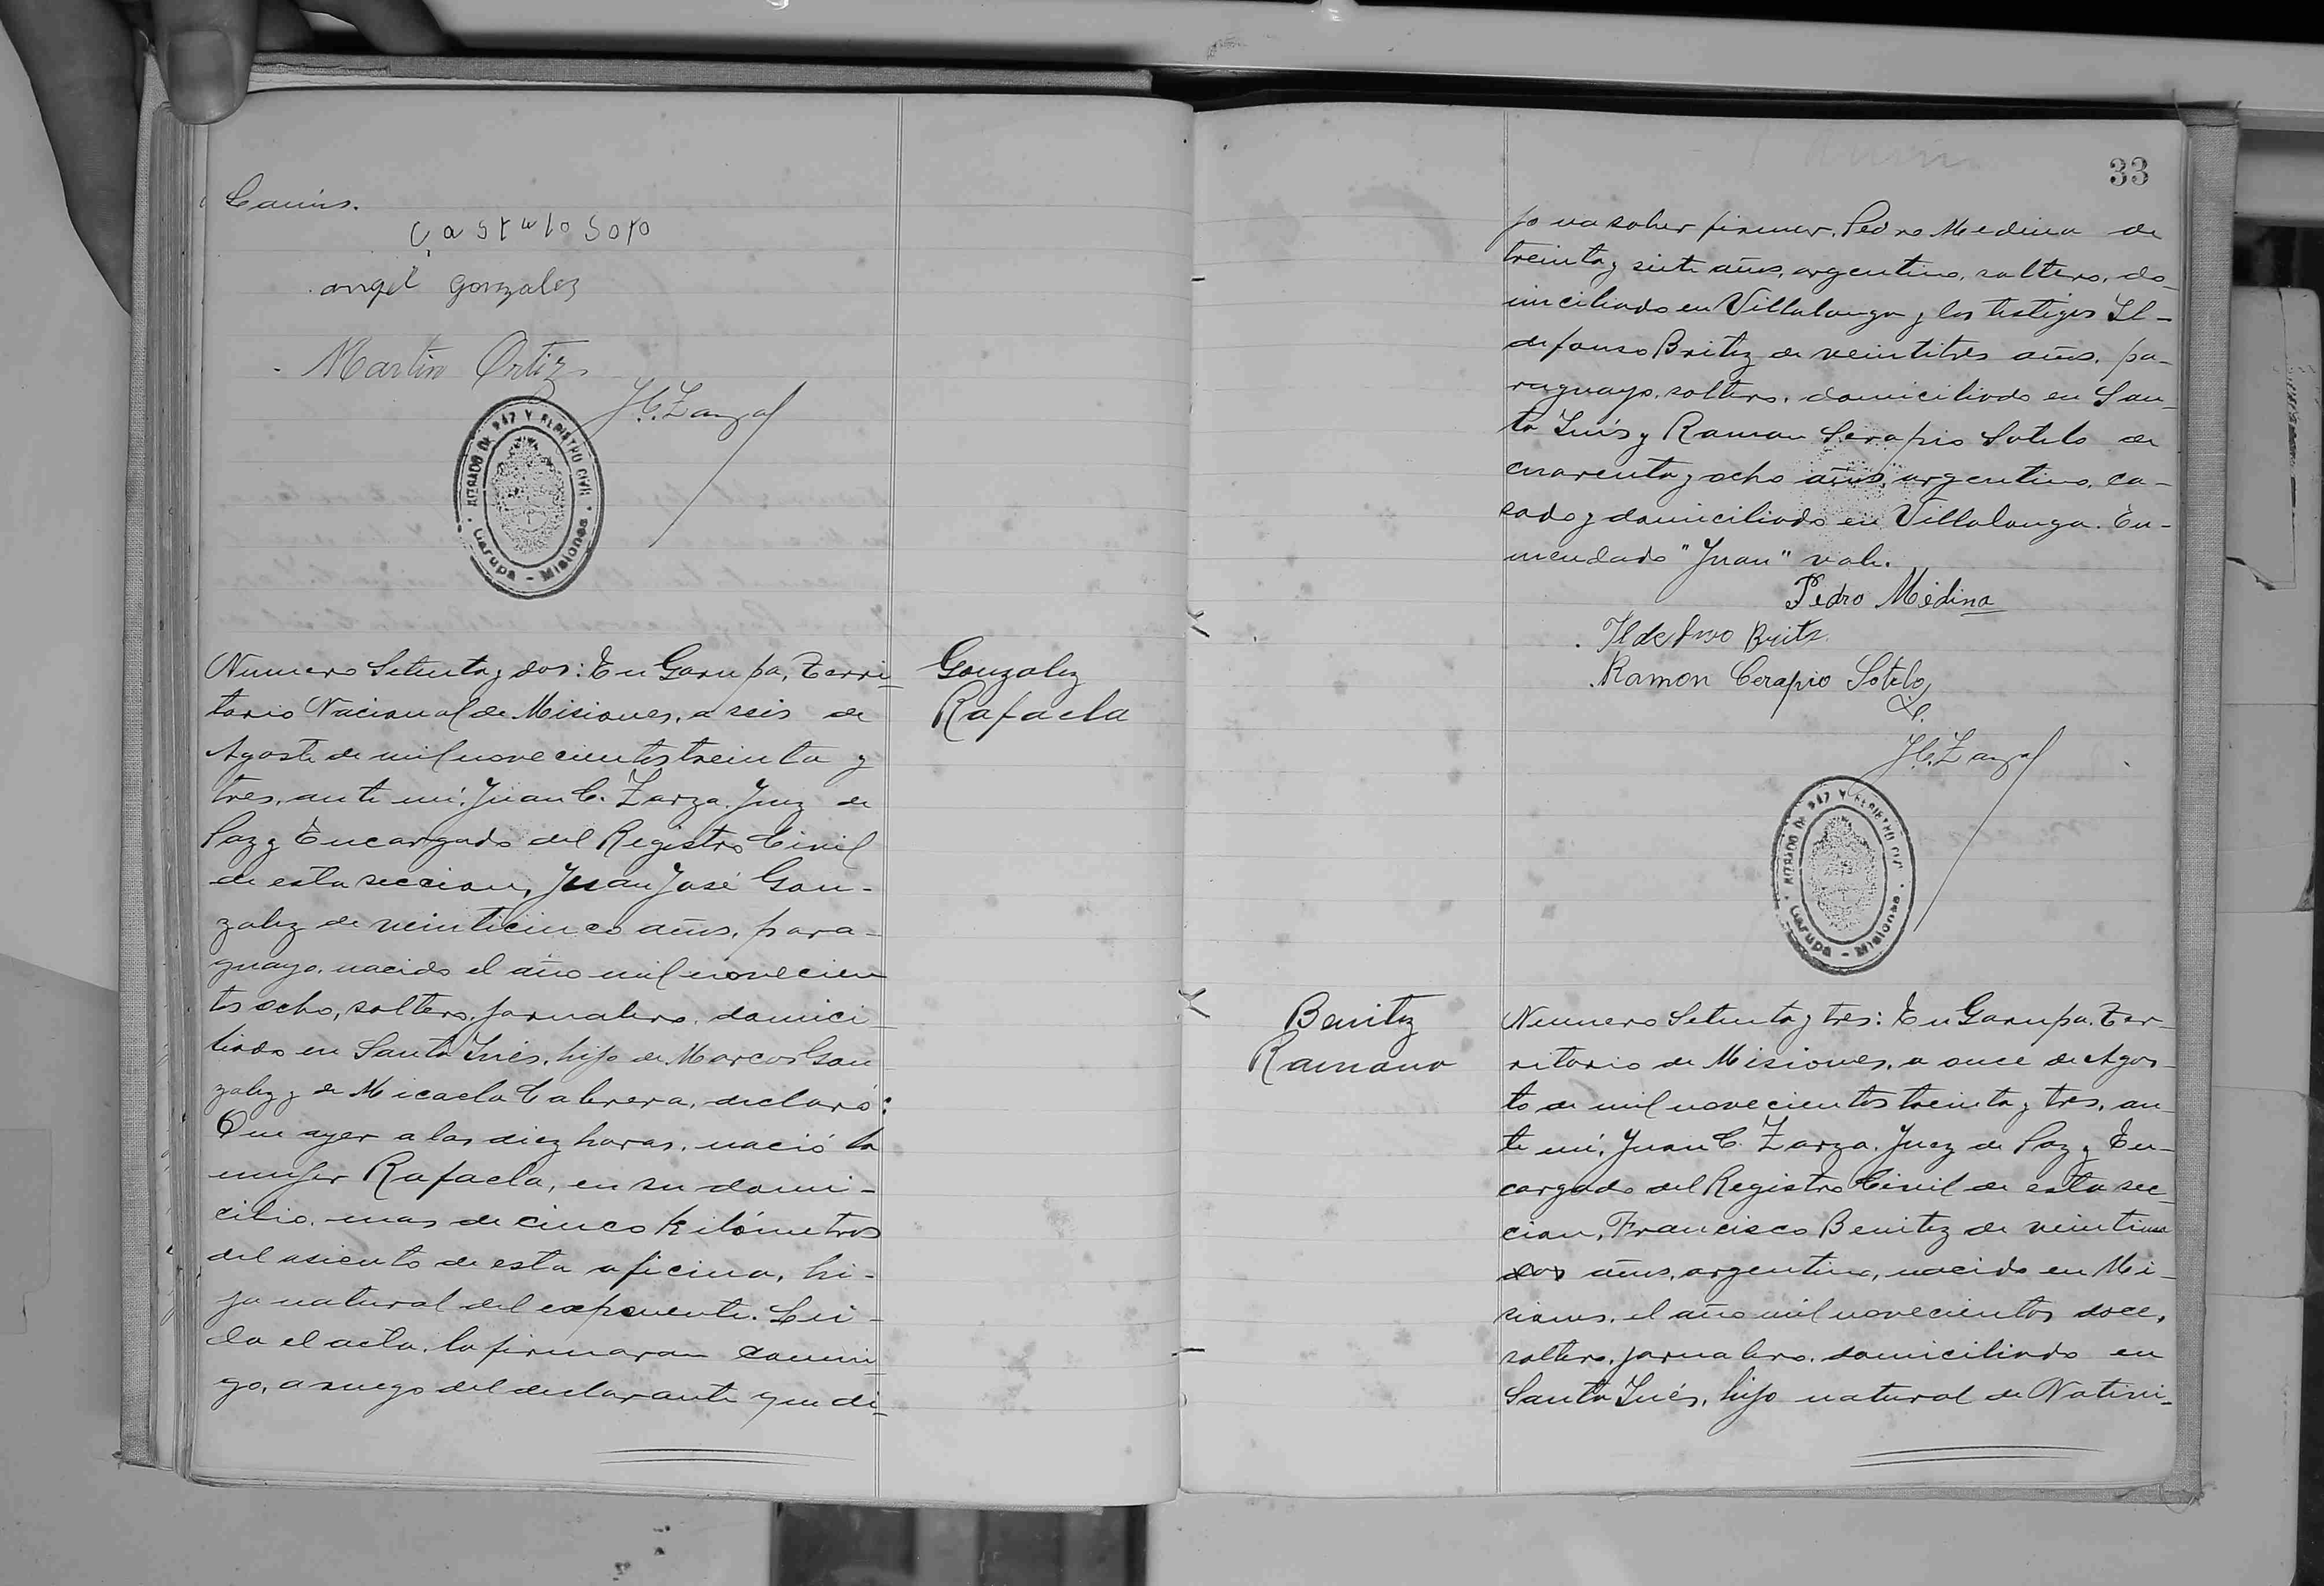 Castulo Soto
angel gonzalez
Martin Ortiz
J. C. Zarza
JUZGADO DE PAZ Y REGISTRO CIVIL
Garupá - Misiones
Numero Setenta y dos: En Garupa, Terri-
torio Nacional de Misiones, a seis de
Agosto de mil novecientos treinta y
tres, ante mí, Juan C. Zarza, Juez de
Paz y Encargado del Registro Civil
de esta seccion, Juan José Gon-
zalez de veinticinco años, para-
guayo, nacido el año mil novecien
tos ocho, soltero, jornalero, domici-
liado en Santa Inés, hijo de Marcos Gon
zalez y de Micaela Cabrera, declaró:
Que ayer a las diez horas, nació la
mujer Rafaela, en su domi-
cilio, mas de cinco kilómetros
del asiento de esta oficina, hi-
ja natural del exponente. Lei-
da el acta, la firmaron conmi
go, a ruego del declarante que di-
Gonzalez
Rafaela
33
jo no saber firmar, Pedro Medina de
treinta y siete años, argentino, soltero, do-
miciliado en Villalonga y los testigos Il-
defonso Britez de veintitres años, pa-
raguayo, soltero, domiciliado en San-
ta Inés y Ramon Serapio Sotelo de
cuarenta y ocho años, argentino, ca-
sado y domiciliado en Villalonga. En-
mendado "Juan" vale.
Pedro Medina
Ildefonso Britez
Ramon Cerapio Sotelo
J. C. Zarza
JUZGADO DE PAZ Y REGISTRO CIVIL
Garupá - Misiones
Benitez
Ramona
Numero Setenta y tres: En Garupa, Ter-
ritorio de Misiones, a once de Agos-
to de mil novecientos treinta y tres, an-
te mí, Juan C. Zarza, Juez de Paz y En-
cargado del Registro Civil de esta sec-
cion, Francisco Benitez de
años, argentino, nacido en Mi-
siones, el año mil novecientos doce,
soltero, jornalero, domiciliado en
Santa Inés, hijo natural de Nativi-